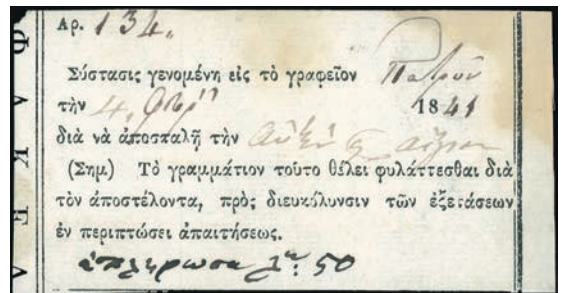 Αρ. 134.
Σύστασις γενομένη εἰς τὸ γραφεῖον Πατρῶν
τὴν 4. 1841
διὰ νὰ ἀποσταλῇ τὴν
(Σημ) Τὸ γραμμάτιον τοῦτο θέλει φυλάττεσθαι διὰ
τὸν ἀποστέλοντα, πρὸς διευκόλυνσιν τῶν ἐξετάσεων
ἐν περιπτώσει ἀπαιτήσεως.
ἐπλήρωσα λ: 50